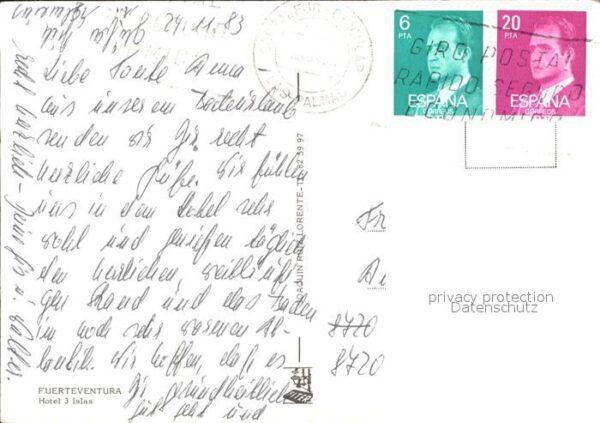 24.11.83
Liebe Tante Anna
aus unserem
senden wir Dir recht
herzliche Grüße. Wir fühlen
uns in dem Hotel sehr
wohl und genießen täglich
den herrlichen, weitläufi-
gen Strand und das Baden
im noch sehr warmen At-
lantik. Wir hoffen, daß es
Dir gesundheitlich
gut geht und
6
PTA
ESPAÑA
CORREOS
20
PTA
ESPAÑA
CORREOS
GIRO POSTAL
RAPIDO SEGURO
ECONOMICO
LAS PALMAS
JOAQUIN RUIZ LORENTE-TL. 82 59 97
Fr
An
8720
8720
privacy protection
Datenschutz
FUERTEVENTURA
Hotel 3 Islas